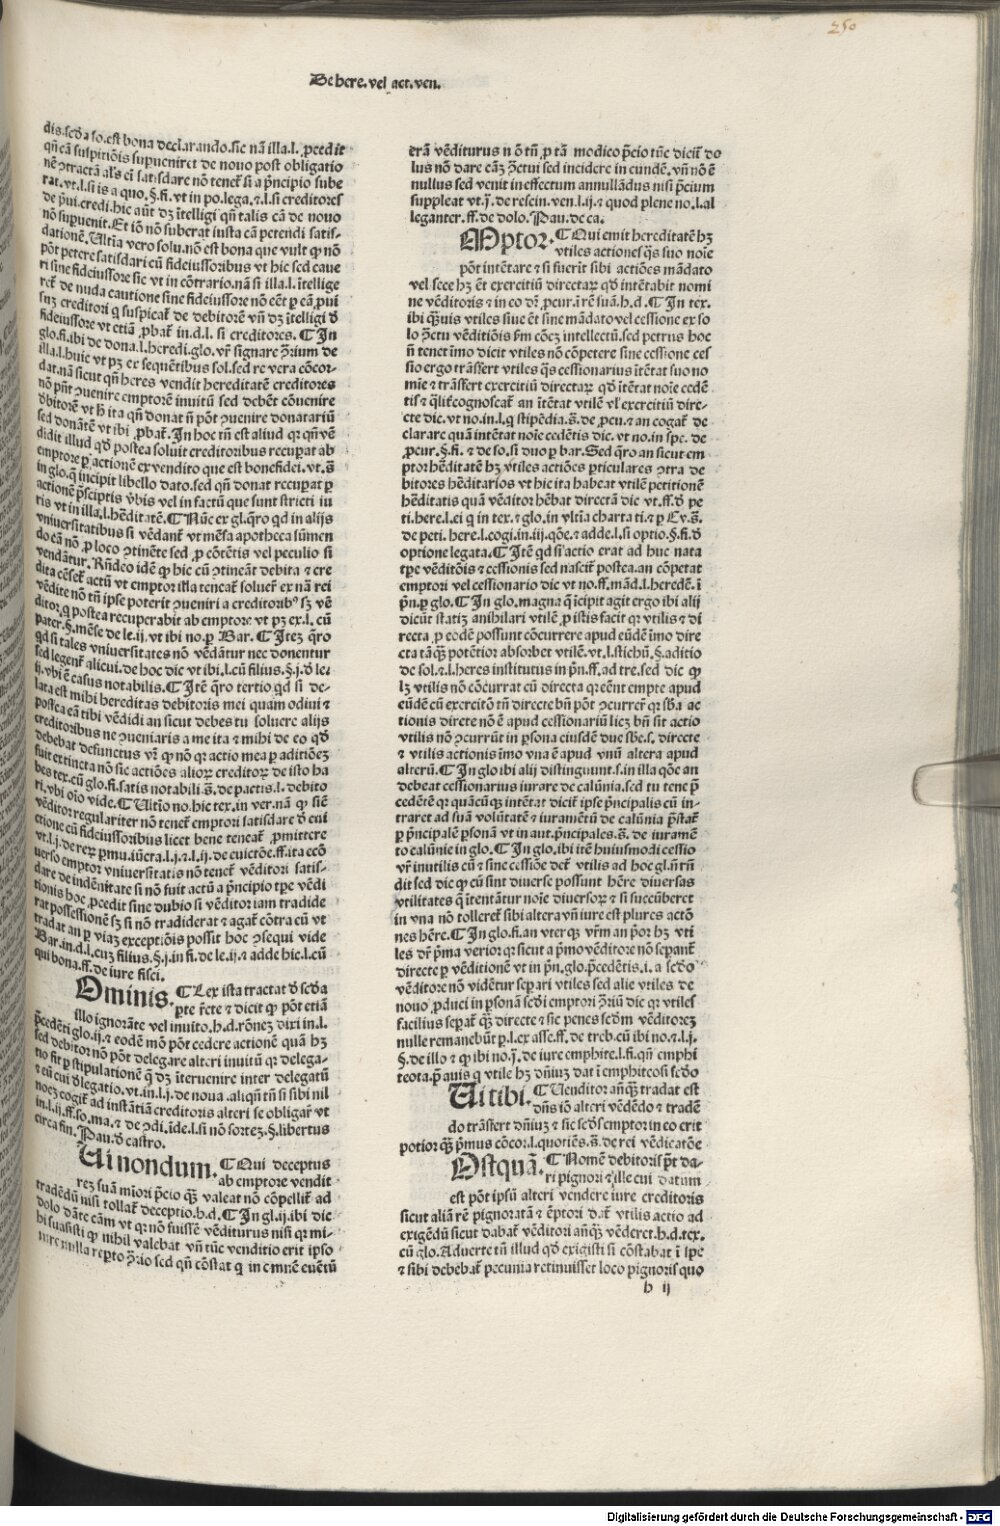 250
De here.vel act.ven.
dis.sed a so.est bona declarando.sic nā illa.l.ꝓcedit
qn̄ cā suspitiōis supueniret de nouo post obligatio
nē ꝯtractā al's ei satisdare nō tenet̄ si a p̄ncipio sube
rat.vt.l.si is a quo.§.fi.vt in po.lega.⁊.l.si creditores
de p̄ui.credi.hic aūt dꝫ ītelligi qn̄ talis cā de nouo
nō supuenit.Et iō nō suberat iusta cā petendi satis-
dationē.Ultīa vero solu.nō est bona que vult ꝙ nō
pōt petere satisdari cū fideiussoribus vt hic sed caue
ri sine fideiussore sic vt in cōtrario.nā si illa.l.ītellige
ret̄ de nuda cautione sine fideiussore nō cēt ꝑ cā p̄ui
suꝫ creditori q̄ suspicat̄ de debitore vn̄ dꝫ ītelligi ð
fideiussore vt etiā ꝓbat̄ in.d.l.si creditores.¶In
glo.fi.ibi de dona.l.heredi.glo.vr̄ signare ꝯ̄rium de
illa.l.huic vt pꝫ ex sequētibus sol.sed re vera cōcor-
dat.nā sicut qn̄ heres vendit hereditatē creditores
nō pn̄t ꝯuenire emptorē inuitū sed debēt cōuenire
ðbitorē vt h̄ ita qn̄ donat n̄ pōt ꝯuenire donatariū
sed donātē vt ibi ꝓbat̄.In hoc tn̄ est aliud qꝛ qn̄ vē
didit illud qð postea soluit creditoribus recuꝑat ab
emptore ꝑ actionē ex vendito que est bonefidei.vt.s̄
in glo.q̄ incipit libello dato.sed qn̄ donat recuꝑat ꝑ
actionē p̄scriptis v̄bis vel in factū que sunt stricti iu
ris vt in illa.l.hēditatē.¶Nūc ex gl.q̄ro qd in alijs
vniuersitatibus si vēdant̄ vt mēsa apotheca sūmen
do eā nō ꝓ loco ꝯtinēte sed ꝓ cōtētis vel peculio si
vendātur.Rn̄deo idē ꝙ hic cū ꝯtineāt debita ⁊ cre
dita cēset̄ actū vt emptor illa teneat̄ soluer̄ ex nā rei
vēdite nō tn̄ ipse poterit ꝯueniri a creditorib⁹ sꝫ vē
ditor.q postea recuperabit ab emptore vt pꝫ ex.l.cū
pater.§.mēse de le.ij.vt ibi no.ꝑ Bar.¶Iteꝫ q̄ro
qd si tales vniuersitates nō vendātur nec donentur
sed legent̄ alicui.de hoc dic vt ibi.l.cū filius.§.j.ð le.
ij.vbi ē casus notabilis.¶Itē q̄ro tertio qd si de-
lata est mihi hereditas debitoris mei quam odiui ⁊
postea eā tibi vēdidi an sicut debes tu soluere alijs
creditoribus ne ꝯueniaris a me ita ⁊ mihi de eo qð
debebat defunctus vr̄ ꝙ nō qꝛ actio mea ꝑ aditiōeꝫ
fuit extincta nō sic actiōes alioꝝ creditoꝝ de isto ha
bes tex.cū glo.fi.satis notabili.s̄.de pactis.l.debito
ri.vbi oīo vide.¶Ultīo no.hic tex.in ver.nā ꝙ siē
vēditor regulariter nō tenet̄ emptori satisdare ð eui
ctione cū fideiussoribus licet bene teneat̄ ꝓmittere
vt.l.j.de reꝝ ꝑmu.iūcta.l.j.⁊.l.ij.de euictōe.ff.ita ecō
uerso emptor vniuersitatis nō tenet̄ vēditori satis-
dare de indēnitate si nō fuit actū a p̄ncipio tꝑe vēdi
tionis hoc ꝓcedit sine dubio si vēditor iam tradide
rat possessionē sꝫ si nō tradiderat ⁊ agat̄ cōtra cū vt
tradat an ꝑ viaꝫ exceptiōis possit hoc ꝯsequi vide
Bar.in.d.l.cuꝫ filius.§.j.in fi.de le.ij.⁊ adde hic.l.cū
qui bona.ff.de iure fisci.
Ominis.¶Lex ista tractat ð scða
ꝑte r̄cte ⁊ dicit ꝙ pōt etiā
illo ignorāte vel inuito.h.d.rōneꝫ dixi in.l.
p̄cedēti glo.ij.⁊ eodē mō pōt cedere actionē quā hꝫ
sed debitor nō pōt delegare alteri inuitū qꝛ delega-
tio fit ꝑ stipulationē q̄ dꝫ īteruenire inter delegatū
⁊ eū cui ðlegatio.vt.in.l.j.de noua.aliqn̄ tn̄ si sibi nil
noeꝫ cogit̄ ad instātiā creditoris alteri se obligar̄ vt
in.l.ij.ff.so.ma.⁊ de ꝯdi.īde.l.si nō sorteꝫ.§.libertus
circa fin.Pau.ð castro.
Ui nondum.¶Qui deceptus
ab emptore vendit
reꝫ suā miori p̄cio q̄ꝫ valeat nō cōpellit̄ ad
tradēdū nisi tollat̄ deceptio.h.d.¶In gl.ij.ibi dic
dolo dāte cām vt qꝛ nō fuissē vēditurus nisi qꝛ mi-
hi suasisti ꝙ nihil valebat vn̄ tūc venditio erit ipso
iure nulla reꝑto ꝯ̄rio sed qn̄ cōstat ꝙ in omnē euētū
erā vēditurus nō tn̄ ꝓ tā modico p̄cio tūc dicit̄ do
lus nō dare cāꝫ ꝯ̄ctui sed incidere in eundē.vn̄ nō ē
nullus sed venit in effectum annullādus nisi p̄cium
suppleat vt.j̄.de rescin.ven.l.ij.⁊ quod plene no.l.al
leganter.ff.de dolo.Pau.de ca.
Mptor.¶Qui emit hereditatē hꝫ
vtiles actiones q̄s suo noīe
pōt intētare ⁊ si fuerit sibi actiōes mādato
vel scee hꝫ ēt exercitiū directaꝝ qð intētabit nomi
ne vēditoris ⁊ in eo dr̄ ꝓcur.ī rē suā.h.d.¶In tex.
ibi q̄uis vtiles siue ēt sine mādato vel cessione ex so
lo ꝯ̄ctu vēditiōis sm̄ cōeꝫ intellectū.sed petrus hoc
n̄ tenet īmo dicit vtiles nō cōpetere sine cessione ces
sio ergo trāsfert vtiles q̄s cessionarius ītētat suo no
mīe ⁊ trāsfert exercitiū directaꝝ qð ītētat noīe cedē
tis ⁊ q̄lit̄ cognoscat̄ an ītētat vtilē vl' exercitiū dire-
cte dic.vt no.in.l.q stipēdia.s̄.de ꝓcu.⁊ an cogat̄ de
clarare quā intētat noīe cedētis dic.vt no.in spe.de
ꝓcur.§.fi.⁊ de so.si duo ꝑ bar.Sed q̄ro an sicut em
ptor hēditatē hꝫ vtiles actiōes ꝑticulares ꝯtra de
bitores hēditarios vt hic ita habeat vtilē petitionē
hēditatis quā vēditor hēbat directā dic vt.ff.ð pe
ti.here.l.ei q in tex.⁊ glo.in vltīa charta ti.⁊ ꝑ Cy.s̄.
de peti.here.l.cogi.in.iij.qōe.⁊ adde.l.si optio.§.fi.ð
optione legata.¶Itē qd si actio erat ad huc nata
tꝑe vēditōis ⁊ cessionis sed nascit̄ postea.an cōpetat
emptori vel cessionario dic vt no.ff.mād.l.heredē.ī
p̄n.ꝑ glo.¶In glo.magna q̄ īcipit agit ergo ibi alij
dicūt statiꝫ anihilari vtilē ꝓ istis facit qꝛ vtilis ⁊ di
recta ꝓ eodē possunt cōcurrere apud eūdē īmo dire
cta tāq̄ꝫ potētior absorbet vtilē.vt.l.stichū.§.aditio
de sol.⁊.l.heres institutus in p̄n.ff.ad tre.sed dic ꝙ
lꝫ vtilis nō cōcurrat cū directa qꝛ eēnt empte apud
eūdē cū exercitō tn̄ directe bn̄ pōt ꝯcurrer̄ qꝛ s̄ba ac
tionis directe nō ē apud cessionariū licꝫ bn̄ sit actio
vtilis nō ꝯcurrūt in ꝑsona eiusdē due s̄be.s.directe
⁊ vtilis actionis īmo vna ē apud vnū altera apud
alterū.¶In glo ibi alij distinguunt.s.in illa qōe an
debeat cessionarius iurare de calūnia.sed tu tene ꝑ
cedētē qꝛ quācūqꝫ intētat dicit̄ ipse p̄ncipalis cū in-
traret ad suā volūtatē ⁊ iuramētū de calūnia p̄stat̄
ꝑ p̄ncipalē ꝑsonā vt in aut.p̄ncipales.s̄.de iuramē
to calūnie in glo.¶In glo.ibi itē huiusmodi cessio
vr̄ inutilis cū ⁊ sine cessiōe det̄ vtilis ad hoc gl.n̄ rn̄
dit sed dic ꝙ cū sint diuerse possunt hēre diuersas
vtilitates q̄ ītentātur noīe diuersoꝝ ⁊ si succūberet
in vna nō tolleret̄ sibi altera vn̄ iure est plures actō
nes hēre.¶In glo.fi.an vterqꝫ vr̄m an p̄or hꝫ vti
les dr̄ p̄ma verior qꝛ sicut a p̄mo vēditore nō separant̄
directe ꝑ vēditionē vt in p̄n.glo.p̄cedētis.i.a scðo
vēditore nō vidētur seꝑari vtiles sed alie vtiles de
nouo ꝓduci in ꝑsonā scði emptori ꝯ̄riū dic qꝛ vtiles
facilius seꝑat̄ q̄ꝫ directe ⁊ sic penes scðm vēditoreꝫ
nulle remanebūt ꝑ.l.ex asse.ff.de treb.cū ibi no.⁊.l.j.
§.de illo ⁊ ꝙ ibi no.j̄.de iure emphite.l.fi.qn̄ emphi
teota.p̄ auis q vtile hꝫ dn̄iuꝫ dat ī emphiteosī scðo
Ui tibi.¶Uenditor an̄q̄ꝫ tradat est
dn̄s iō alteri vēdēdo ⁊ tradē
do trāsfert dn̄iuꝫ ⁊ sic scð's emptor in eo erit
potior q̄ꝫ p̄mus cōco.l.quotiēs.s̄.de rei vēdicatōe
Ostquā.¶Nomē debitoris p̄t da-
ri pignori ⁊ ille cui datum
est pōt ipsū alteri vendere iure creditoris
sicut aliā rē pignoratā ⁊ ēptori dat̄ vtilis actio ad
exigēdū sicut dabat̄ vēditori an̄q̄ꝫ vēderet.h.d.tex.
cū glo.Aduerte tn̄ illud qð exigisti si cōstabat ī spē
⁊ sibi debebat̄ pecunia retinuisset loco pignoris quo
b ij
Digitalisierung gefördert durch die Deutsche Forschungsgemeinschaft - DFG